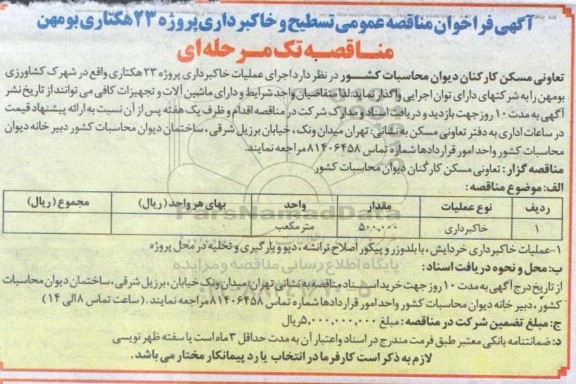 آگهی فراخوان مناقصه عمومی تسطیح و خاکبرداری پروژه ۲۳ هکتاری بومهن
مناقصه تک مرحله ای
تعاونی مسکن کارکنان دیوان محاسبات کشور در نظر دارد اجرای عملیات خاکبرداری پروژه ۲۳ هکتاری واقع در شهرک کشاورزی
بومهن را به شرکتهای دارای توان اجرایی واگذار نماید. لذا متقاضیان واجد شرایط و دارای ماشین آلات و تجهیزات کافی می توانند از تاریخ نشر
آگهی به مدت ۱۰ روز جهت بازدید و دریافت اسناد و مدارک شرکت در مناقصه اقدام و ظرف یک هفته پس از آن نسبت به ارائه پیشنهاد قیمت
در ساعات اداری به دفتر تعاونی مسکن به نشانی: تهران میدان ونک، خیابان برزیل شرقی، ساختمان دیوان محاسبات کشور دبیر خانه دیوان
محاسبات کشور واحد امور قراردادها شماره تماس ۸۱۴۰۶۴۵۸ مراجعه نمایند.
مناقصه گزار: تعاونی مسکن کارکنان دیوان محاسبات کشور
الف: موضوع مناقصه:
ردیف نوع عملیات مقدار واحد بهای هر واحد (ریال) مجموع (ریال)
۱ خاکبرداری ۵۰۰,۰۰۰ متر مکعب
ParsNamadData
پایگاه اطلاع رسانی مناقصه و مزایده
۱- عملیات خاکبرداری خردایش، با بلدوزر و پیکور اصلاح ترانشه، دپو و بارگیری و تخلیه در محل پروژه
ب: محل و نحوه دریافت اسناد:
از تاریخ درج آگهی به مدت ۱۰ روز جهت خرید اسناد مناقصه به نشانی تهران میدان ونک خیابان، برزیل شرقی، ساختمان دیوان محاسبات
کشور، دبیر خانه دیوان محاسبات کشور واحد امور قراردادها شماره تماس ۸۱۴۰۶۴۵۸ مراجعه نمایند. (ساعت تماس ۸ الی ۱۴)
ج: مبلغ تضمین شرکت در مناقصه: مبلغ ۵,۰۰۰,۰۰۰,۰۰۰ ریال
د: ضمانتنامه بانکی معتبر طبق فرمت مندرج در اسناد و اعتبار آن به مدت حداقل ۳ ماه است یا سفته ظهر نویسی
لازم به ذکر است کارفرما در انتخاب یا رد پیمانکار مختار می باشد.